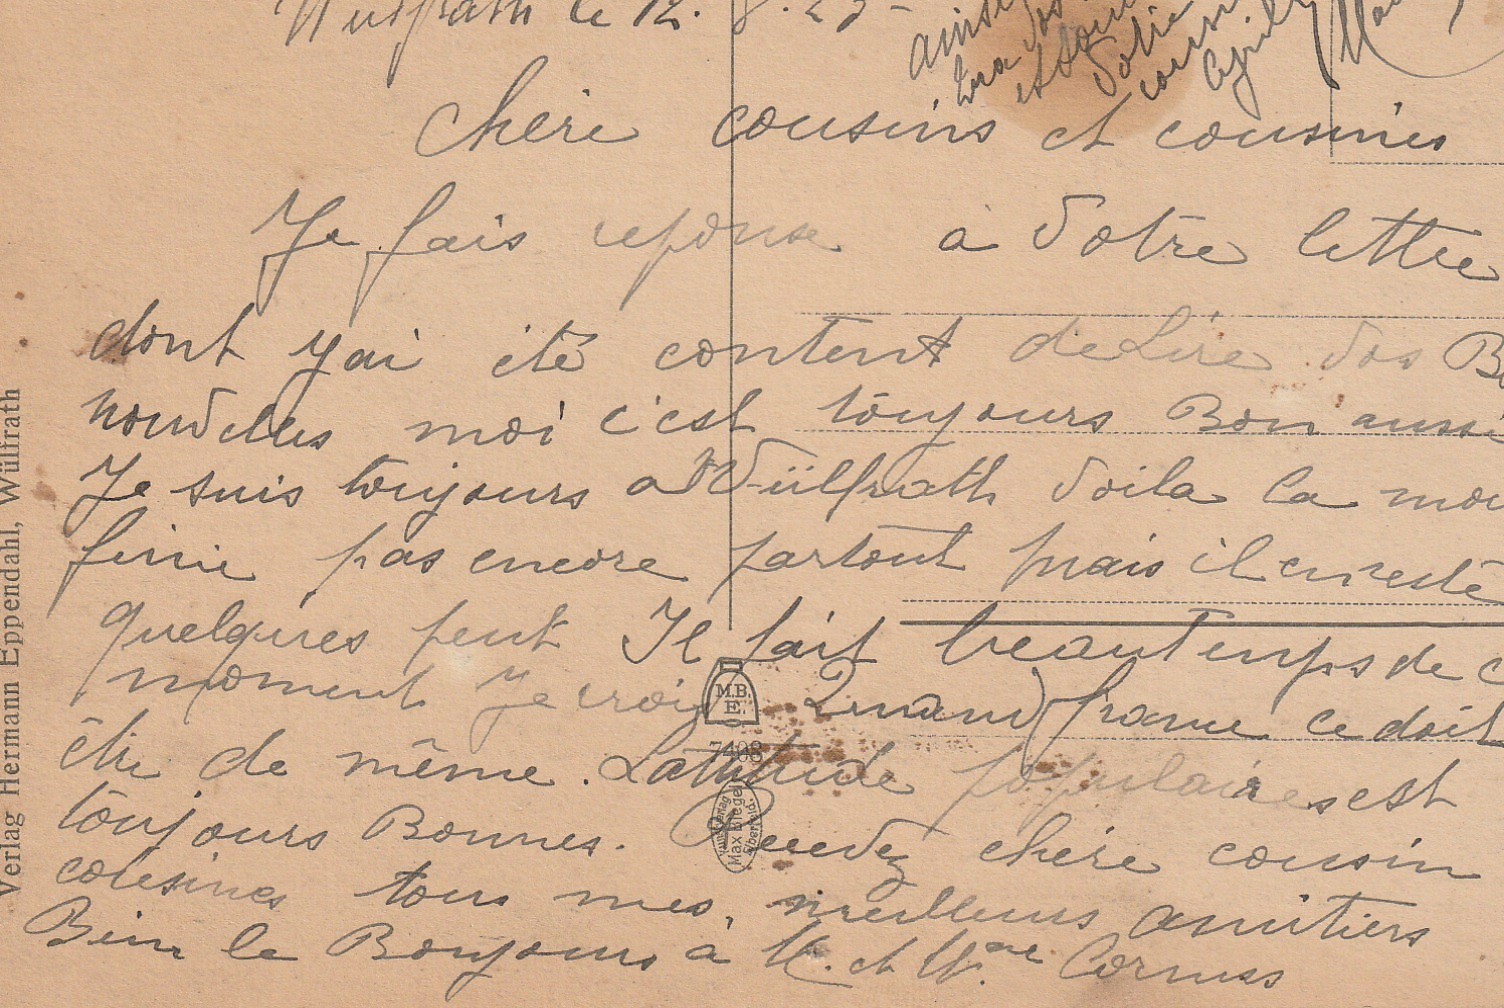 Wülfrath le 12. 8. 23
ainsi
et
votre
cousin
Chére cousins et cousines
Je fais reponse à Votre lettre
dont j'ai été content de Lire Vos
nouvelles moi c'est toujours Bon aussi
Je suis toujours a Wülfrath Voila la
finie pas encore partout mais il en reste
quelques peut Il fait beau temps de
moment Je crois Quand france ce doit
être de même. Lattitude populaires est
toujours Bonnes. Recevez chére cousin
cousines tous mes, meilleurs amitiers
Bien le Bonjours à M. et Mme Cornus
Verlag Hermann Eppendahl, Wülfrath
M.B.
E.
7408
Max Biegel
Elberfeld